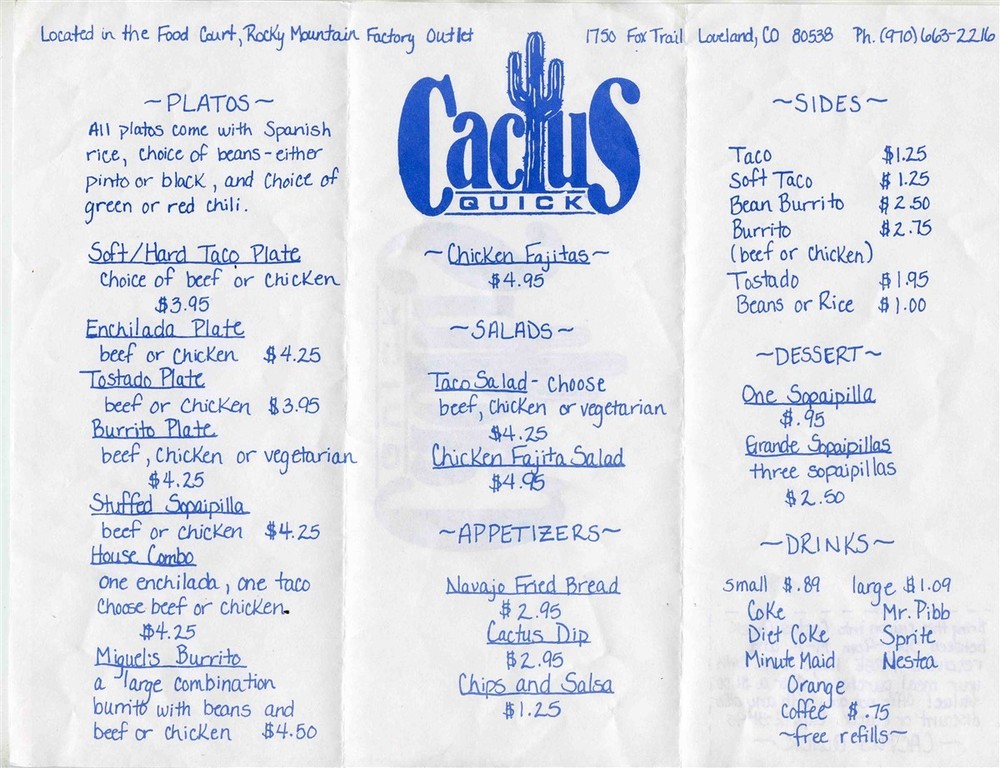 Located in the Food Court, Rocky Mountain Factory Outlet
1750 Fox Trail Loveland, CO 80538 Ph. (970) 663-2216
~PLATOS~
All platos come with Spanish
rice, choice of beans-either
pinto or black, and choice of
green or red chili.
Soft/Hard Taco Plate
choice of beef or chicken
$3.95
Enchilada Plate
beef or chicken $4.25
Tostado Plate
beef or chicken $3.95
Burrito Plate
beef, chicken or vegetarian
$4.25
Stuffed Sopaipilla
beef or chicken $4.25
House Combo
one enchilada, one taco
choose beef or chicken.
$4.25
Miguel's Burrito
a large combination
burrito with beans and
beef or chicken $4.50
Cactus
QUICK
~Chicken Fajitas~
$4.95
~SALADS~
Taco Salad - choose
beef, chicken or vegetarian
$4.25
Chicken Fajita Salad
$4.95
~APPETIZERS~
Navajo Fried Bread
$2.95
Cactus Dip
$2.95
Chips and Salsa
$1.25
~SIDES~
Taco $1.25
Soft Taco $1.25
Bean Burrito $2.50
Burrito $2.75
(beef or chicken)
Tostado $1.95
Beans or Rice $1.00
~DESSERT~
One Sopaipilla
$.95
Grande Sopaipillas
three sopaipillas
$2.50
~DRINKS~
small $.89 large $1.09
Coke Mr. Pibb
Diet Coke Sprite
Minute Maid Nestea
Orange
Coffee $.75
~free refills~